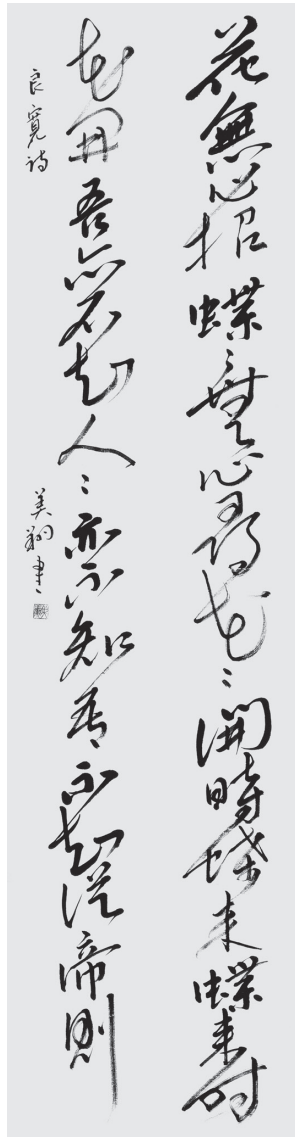 花無心招蝶〻無心尋花〻開時蝶来蝶来時
花開吾亦不知人〻亦不知吾不知従帝則
良寛詩
美翔書